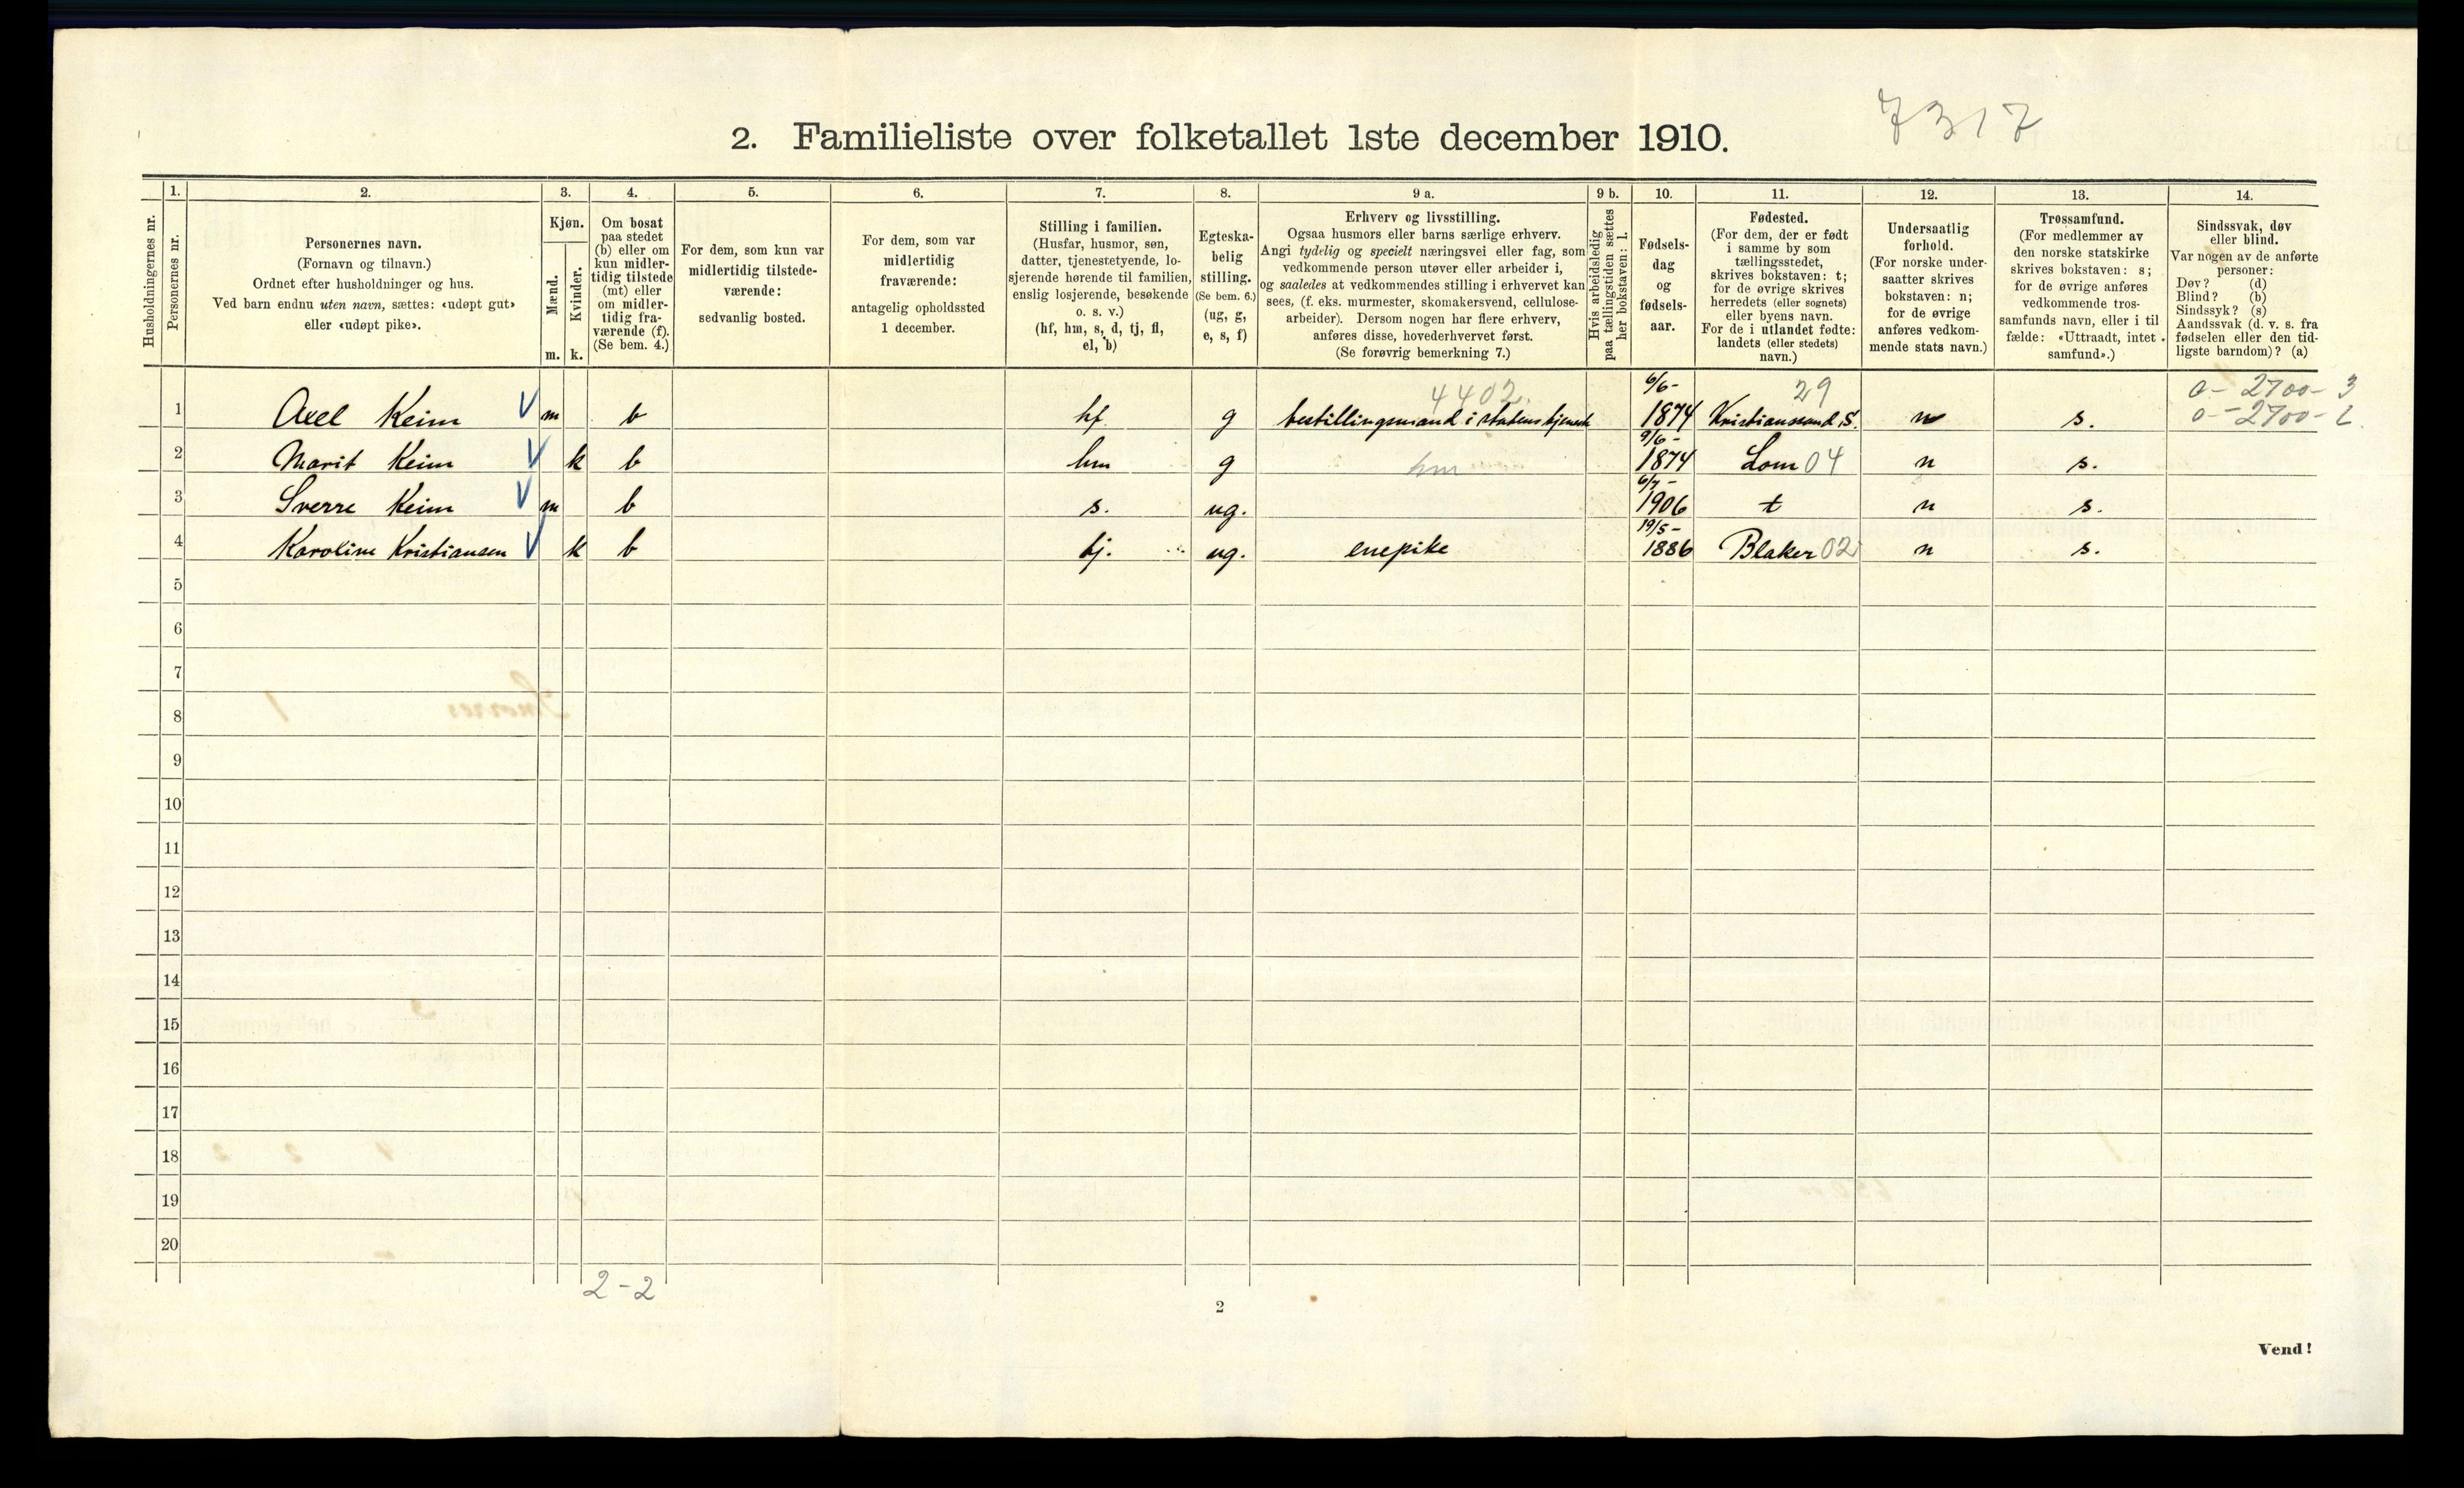 7317
2. Familieliste over folketallet 1ste december 1910.
1. 2. 3. 4. 5. 6. 7. 8. 9 a. 9 b. 10. 11. 12. 13. 14.
Husholdningernes nr.
Personernes nr.
Personernes navn.
(Fornavn og tilnavn.)
Ordnet efter husholdninger og hus.
Ved barn endnu uten navn, sættes: «udøpt gut»
eller «udøpt pike».
Kjøn.
Mænd.
Kvinder.
m. k.
Om bosat
paa stedet
(b) eller om
kun midler-
tidig tilstede
(mt) eller
om midler-
tidig fra-
værende (f).
(Se bem. 4.)
For dem, som kun var
midlertidig tilstede-
værende:
sedvanlig bosted.
For dem, som var
midlertidig
fraværende:
antagelig opholdssted
1 december.
Stilling i familien.
(Husfar, husmor, søn,
datter, tjenestetyende, lo-
sjerende hørende til familien,
enslig losjerende, besøkende
o. s. v.)
(hf, hm, s, d, tj, fl,
el, b)
Egteska-
belig
stilling.
(Se bem. 6.)
(ug, g,
e, s, f)
Erhverv og livsstilling.
Ogsaa husmors eller barns særlige erhverv.
Angi tydelig og specielt næringsvei eller fag, som
vedkommende person utøver eller arbeider i,
og saaledes at vedkommendes stilling i erhvervet kan
sees, (f. eks. murmester, skomakersvend, cellulose-
arbeider). Dersom nogen har flere erhverv,
anføres disse, hovederhvervet først.
(Se forøvrig bemerkning 7.)
Hvis arbeidsledig
paa tællingstiden sættes
her bokstaven: l.
Fødsels-
dag
og
fødsels-
aar.
Fødested.
(For dem, der er født
i samme by som
tællingsstedet,
skrives bokstaven: t;
for de øvrige skrives
herredets (eller sognets)
eller byens navn.
For de i utlandet fødte:
landets (eller stedets)
navn.)
Undersaatlig
forhold.
(For norske under-
saatter skrives
bokstaven: n;
for de øvrige
anføres vedkom-
mende stats navn.)
Trossamfund.
(For medlemmer av
den norske statskirke
skrives bokstaven: s;
for de øvrige anføres
vedkommende tros-
samfunds navn, eller i til-
fælde: «Uttraadt, intet
samfund».)
Sindssvak, døv
eller blind.
Var nogen av de anførte
personer:
Døv? (d)
Blind? (b)
Sindssyk? (s)
Aandssvak (d. v. s. fra
fødselen eller den tid-
ligste barndom)? (a)
4402. 6/6- 29 0- 2700- 3
1 Axel Keim V m b hf g bestillingsmand i statens tjeneste 1874 Kristianssand S. n s. 0- 2700- 2.
9/6-
2 Marit Keim V k b hm g hm 1874 Lom 04 n s.
6/7-
3 Sverre Keim V m b s. ug. 1906 t n s.
19/5-
4 Karoline Kristiansen V k b tj. ug. enepike 1886 Blaker 02 n s.
5
6
7
8
9
10
11
12
13
14
15
16
17
18
19
20
2-2
2
Vend!